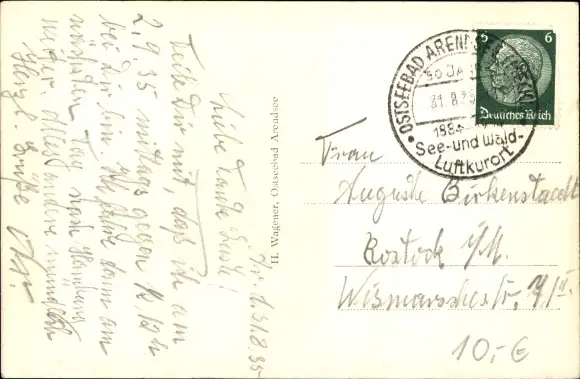 d. 31.8.35
Liebe Tante Guste!
Teile Dir mit, daß ich am
2.9.35 mittags gegen ½ 12 h
bei Dir bin. Ich fahre dann am
nächsten Tag nach Hamburg
weiter. Alles andere mündlich
Herzl. Grüße
H. Wagener, Ostseebad Arendsee
OSTSEEBAD ARENDSEE
50 JAHRE
31.8.35
1884
See- und Wald-
Luftkurort
6 6
Deutsches Reich
Frau
Auguste Birkenstaedt
Rostock i/M.
Wismarschestr. 7/II
10,-€